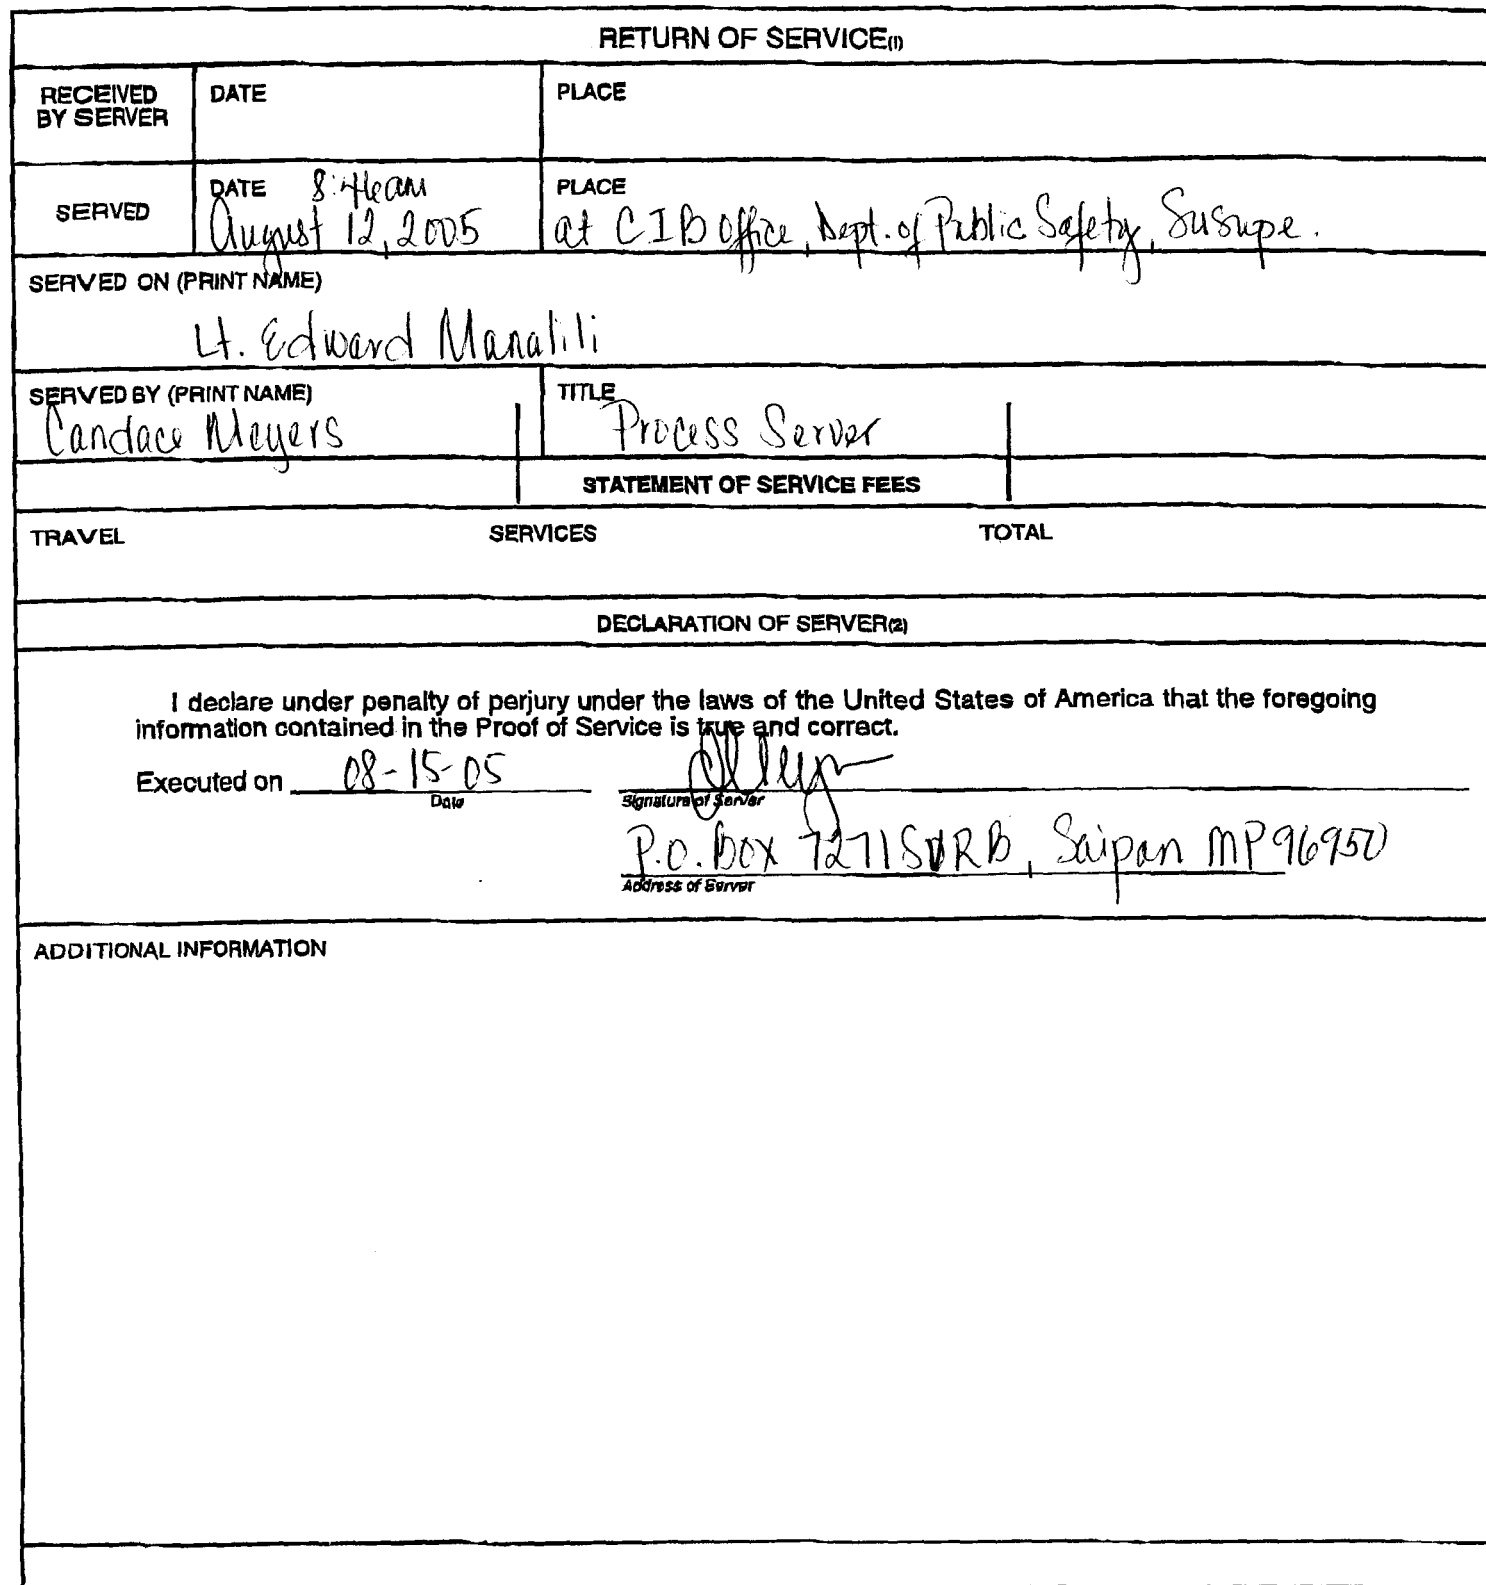 RETURN OF SERVICE(1)
RECEIVED BY SERVER
DATE
PLACE
SERVED
DATE 8:46am
August 12, 2005
PLACE
at CIB Office, Dept. of Public Safety, Susupe.
SERVED ON (PRINT NAME)
Lt. Edward Manalili
SERVED BY (PRINT NAME)
Candace Meyers
TITLE
Process Server
STATEMENT OF SERVICE FEES
TRAVEL SERVICES TOTAL
DECLARATION OF SERVER(2)
I declare under penalty of perjury under the laws of the United States of America that the foregoing
information contained in the Proof of Service is true and correct.
Executed on 08-15-05
Date
Signature of Server
P.O. Box 7271 SVRB, Saipan MP 96950
Address of Server
ADDITIONAL INFORMATION